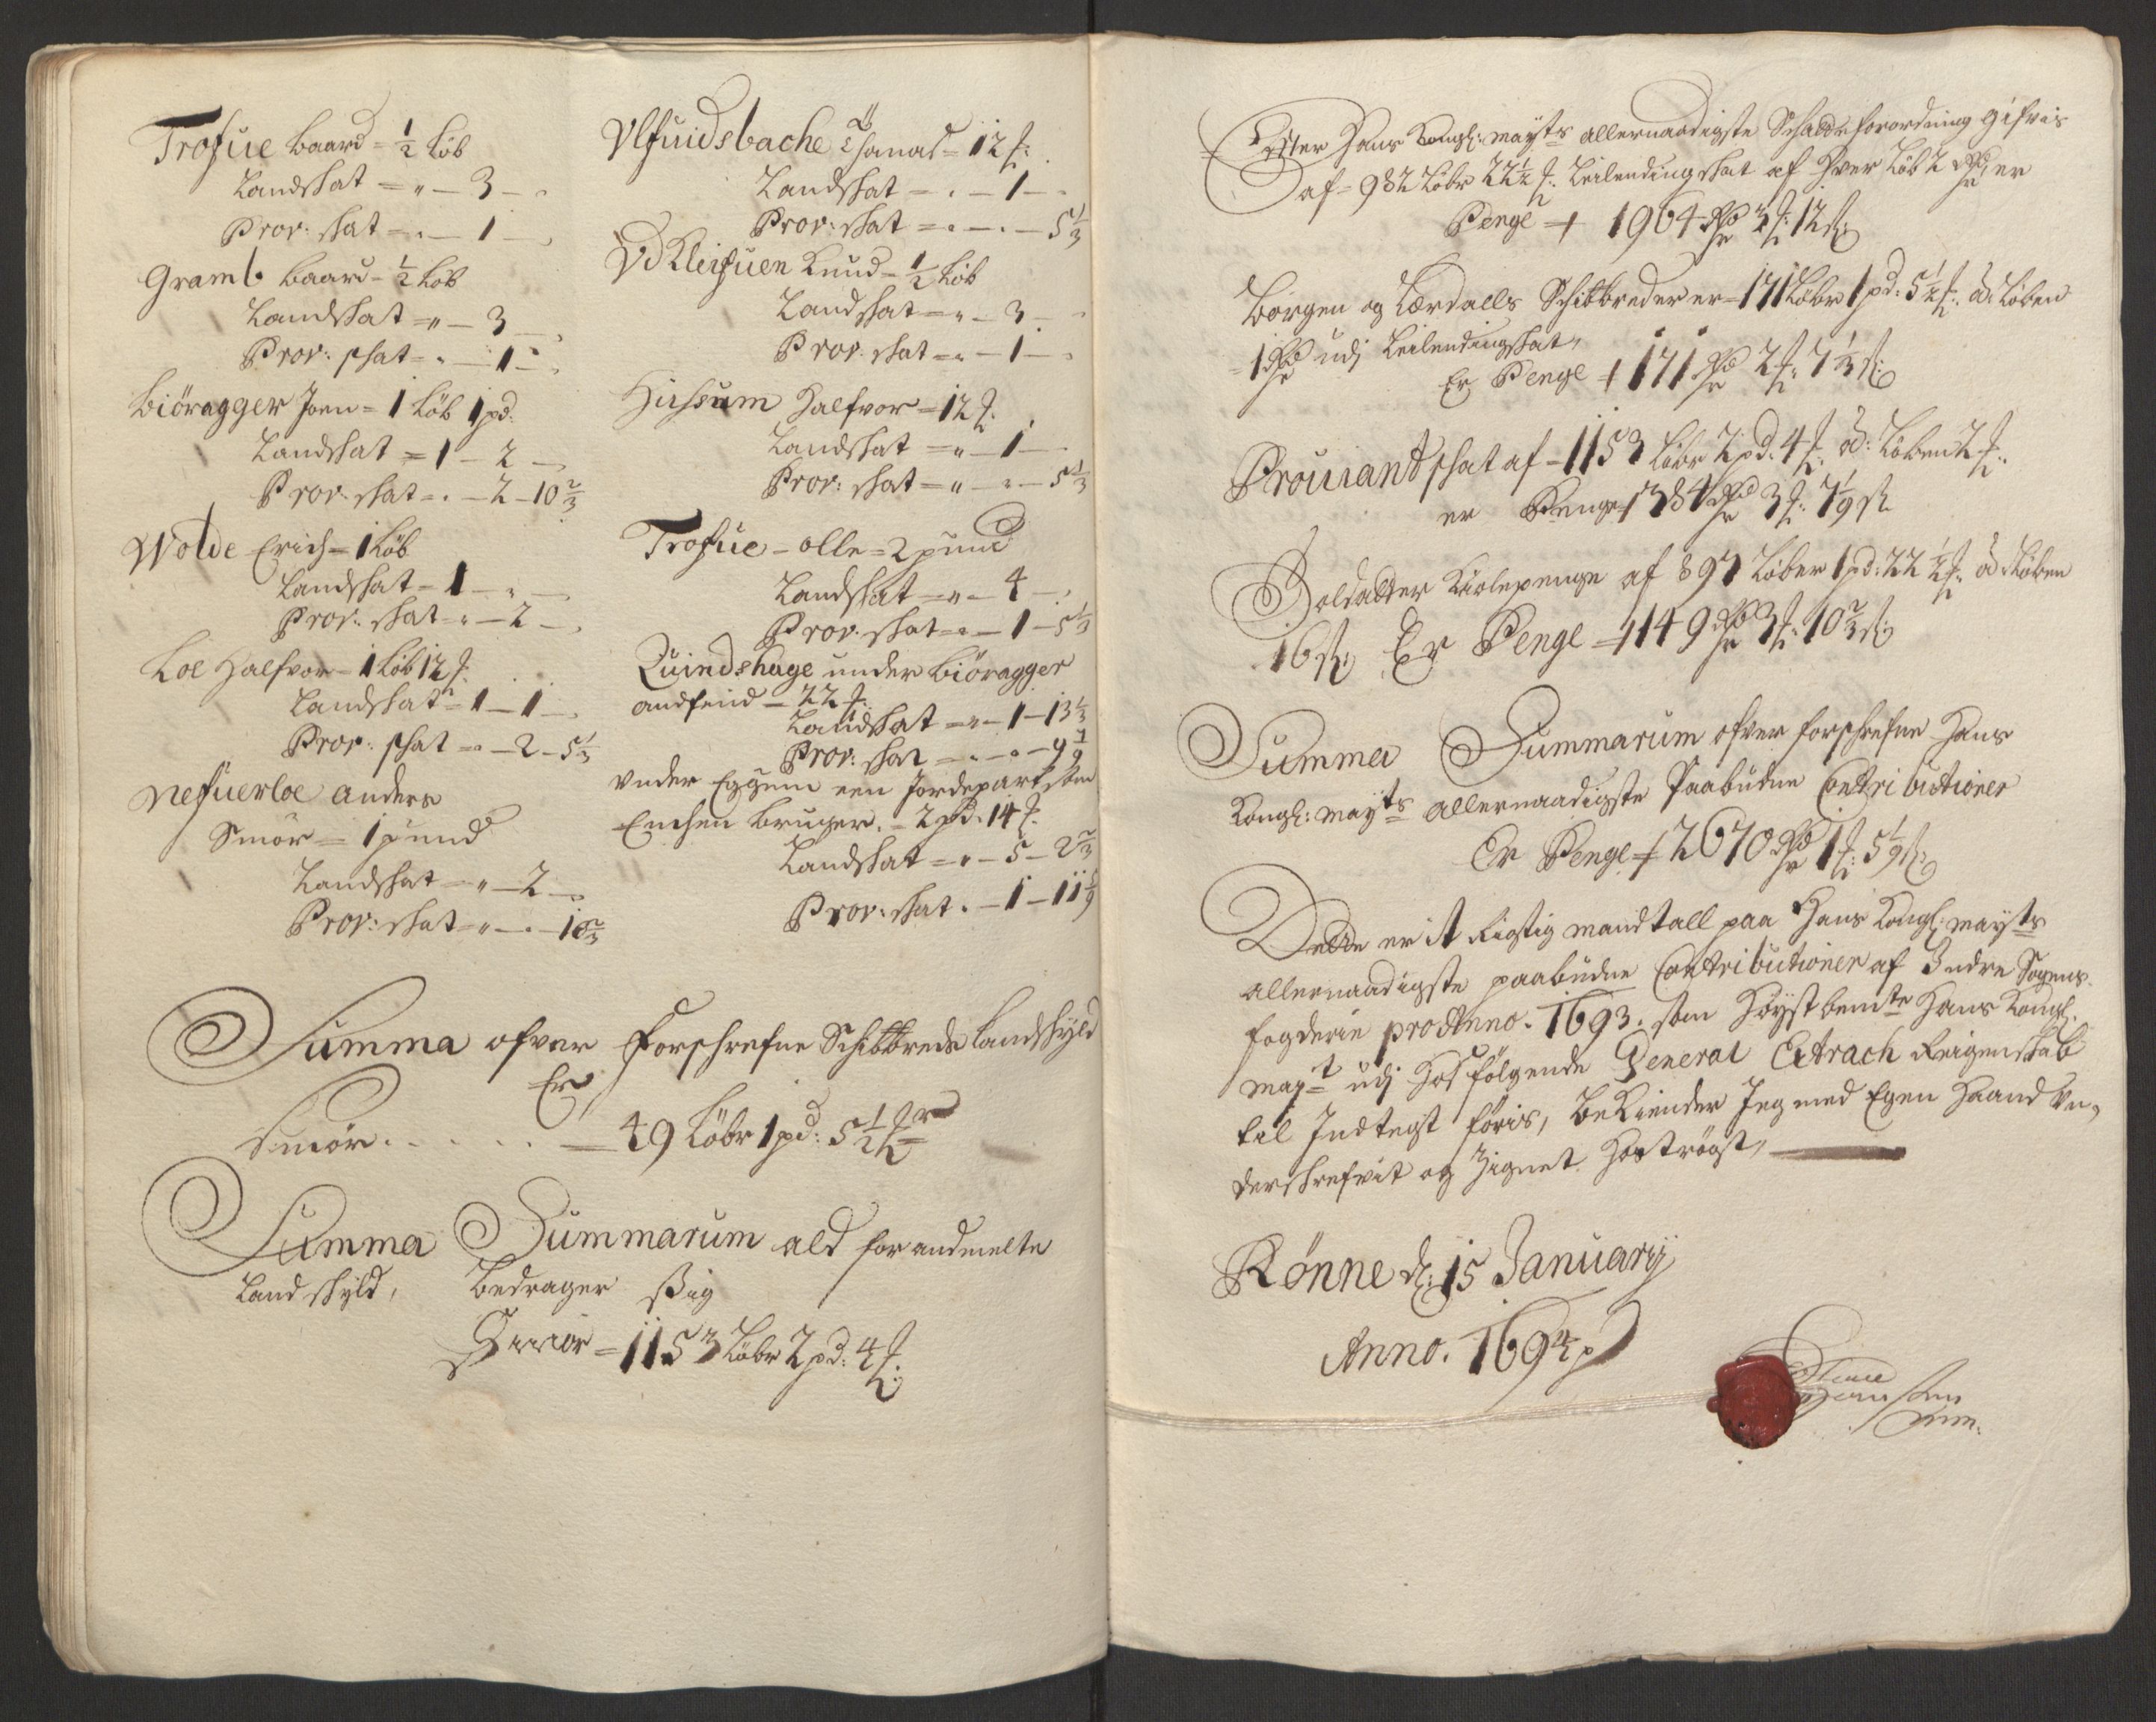 Trofue Baard = ½ Løb
Landskat = " — 3 —
Prov: skat = . — 1 —
Gramb Baard = ½ Løb
Landskat = " — 3 —
Prov: skat = . — 1 —
Biöragger Joen = 1 Løb 1 pd:
Landskat = 1 — 2 —
Prov: skat = . — 2 — 10⅔
Wolde Erich = 1 Løb
Landskat = 1 — " —
Prov: skat = " — 2 —
Loe Halfvor = 1 Løb 12 ℔:
Landskat = 1 — 1 —
Prov: skat = " — 2 — 5⅓
Nefuerloe Anders
Smør = 1 pund
Landskat = " — 2 —
Prov: skat = " — . — 10⅔
Ulfuidsbache = 12 ℔:
Landskat = . — 1 —
Prov: skat = . — . — 5⅓
Vd Kleifuen Knud = ½ Løb
Landskat = " — 3 —
Prov: skat = " — 1 —
Hirsum Halfvor = 12 ℔:
Landskat = " — 1 —
Prov: skat = " — " — 5⅓
Trofue = Olle = 2 pund
Landskat = " — 4 —
Prov: skat = " — 1 — 5⅓
Quindshage under Biöragger
= 22 ℔:
Landskat = " — 1 — 13⅓
Prov: skat = . — . — 9 7/9
Under Eggum een Jordepart som
Enchen Bruger. = 2 pd. 14 ℔.
Landskat = " — 5 — 2⅔
Prov: skat . — 1 — 11 5/9
Summa ofver Forschrefne Schibbrede Landskyld
Er
Smør . . . . . — 49 Løbr 1 pd: 5½ ℔r
Summa Summarum ald forandmelte
Landskyld, Bedrager Sig
Smør = 1153 Løbr 2 pd: 4 ℔:
Effter Hans Kongl: Mayts Allernaadigste Schatte forordning gifvis
af = 982 Løbr 22½ ℔: Leilendingskat af Hver Løb 2 Rdr, er
Penge + 1964 Rdr 3 ℔: 12 s
Borgen og Lærdalls Schibbreder er = 171 Løbr 1 pd: 5½ ℔: á Løben
= 1 Rdr udj Leilendingskat,
Er Penge + 171 Rdr 2 ℔: 7⅓ s
Proviantskat af = 1153 Løbr 2 pd: 4 ℔: á: Løben 2 ℔:
er Penge + 384 Rdr 3 ℔: 7 1/9 s
Soldatter Kiolepenge af 897 Løber 1 pd: 22½ ℔: á Løben
16 s, Er Penge + 149 Rdr 3 ℔: 10⅔ s
Summa Summarum ofver forschrefne Hans
Kongl: Mayts Allernaadigste Paabudne Contributioner
Er Penge + 2670 Rdr 1 ℔: 5 1/9 s
Dette er it Rigtig Mandtall paa Hans Kongl: Mayts
Allernaadigste paabudne Contributioner af Indre Sogns
fogderie pro Anno. 1693. som Høystbemte Hans Kongl.
Mayt udj Hosfølgende General Extrach Reigenskab
til Indtegt føris, Bekiender Jeg med Egen Haand Un,
derskrefvit og Zignet Hoströgt,
Rønne d: 15 January
Anno. 1694